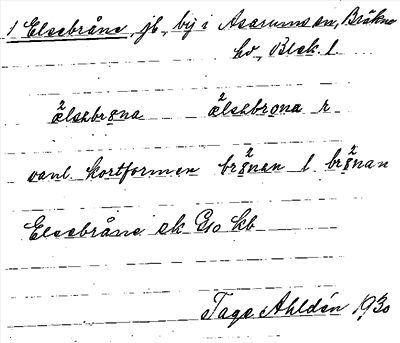 1 Elsebråne, jb, by i Asarums sn, Bräkne
hd, Blek. l.
2ælsəbrǫna 2ælsəbrǫna r
vanl. kortformen br2ǫnan l br2ǫnan
Elsebråne ek G10 kb
Tage Ahldén 1930